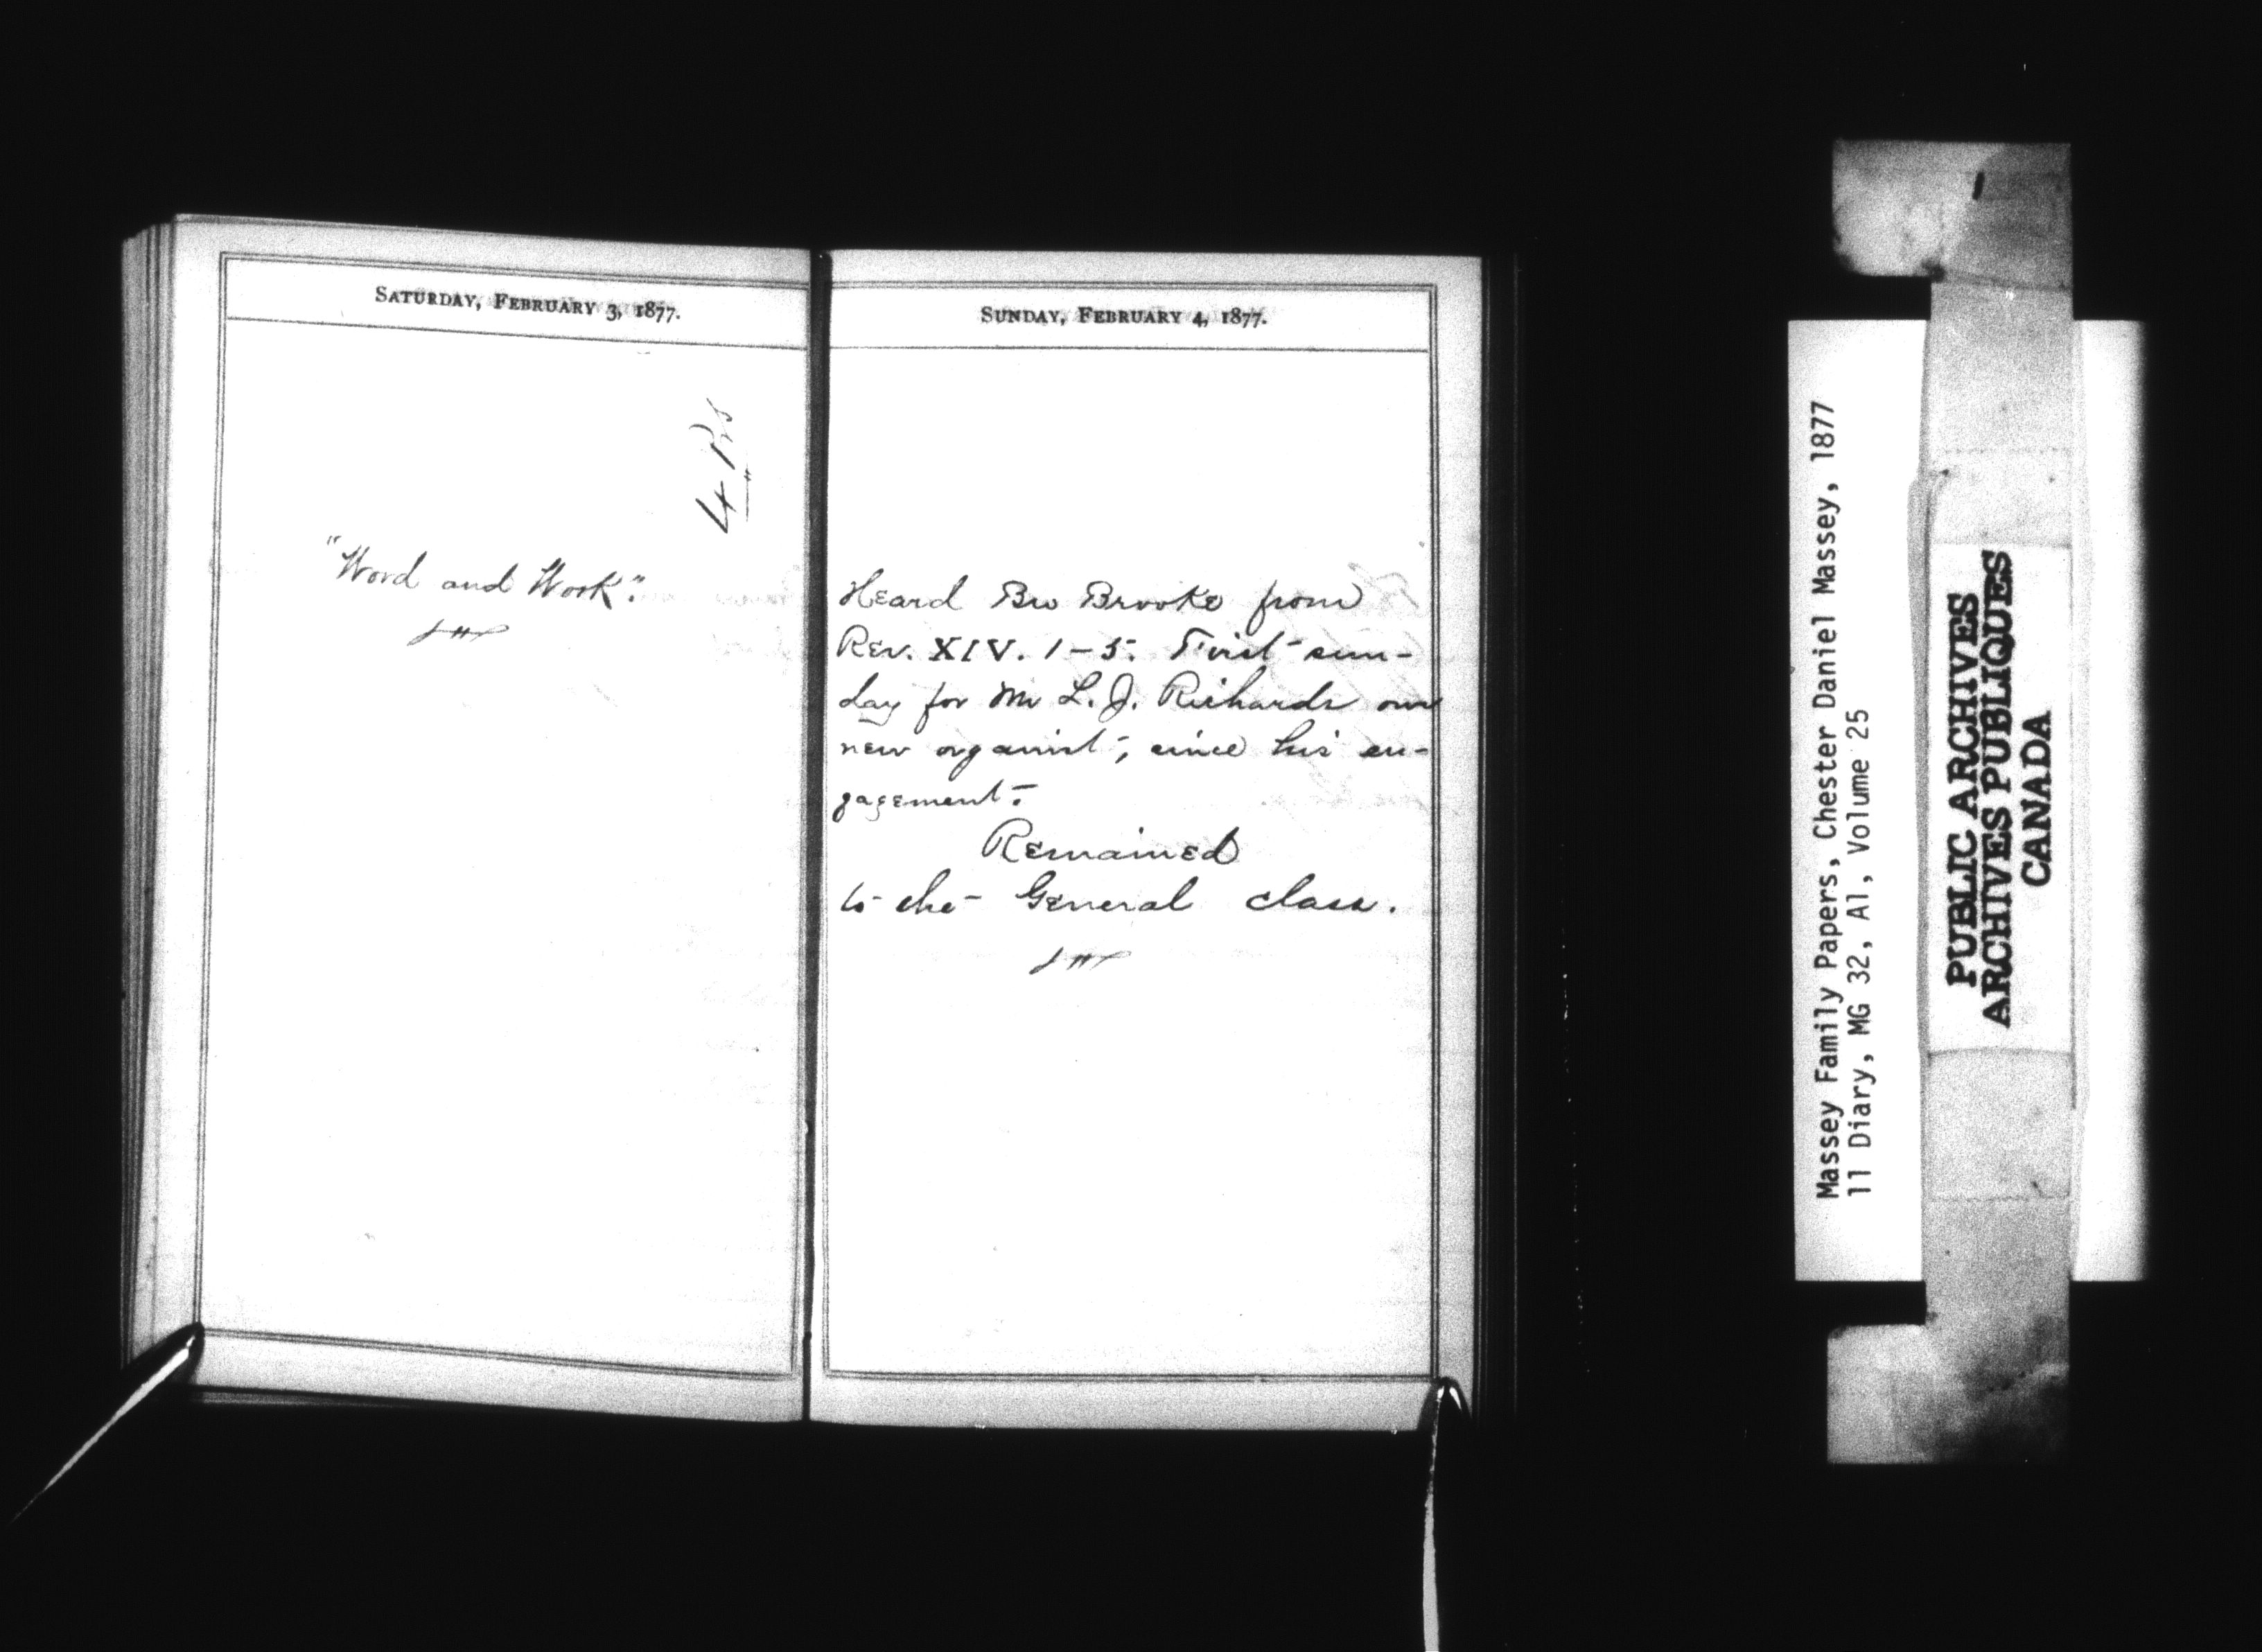 SATURDAY, FEBRUARY 3, 1877.
"Word and Work".
SUNDAY, FEBRUARY 4, 1877.
Heard Bro Brooke from
Rev. XIV. 1-5. First sun-
day for Mr L. J. Richards our
new organist, since his en-
gagement.
Remained
to the General class.
Massey Family Papers, Chester Daniel Massey, 1877
11 Diary, MG 32, A1, Volume 25
PUBLIC ARCHIVES
ARCHIVES PUBLIQUES
CANADA